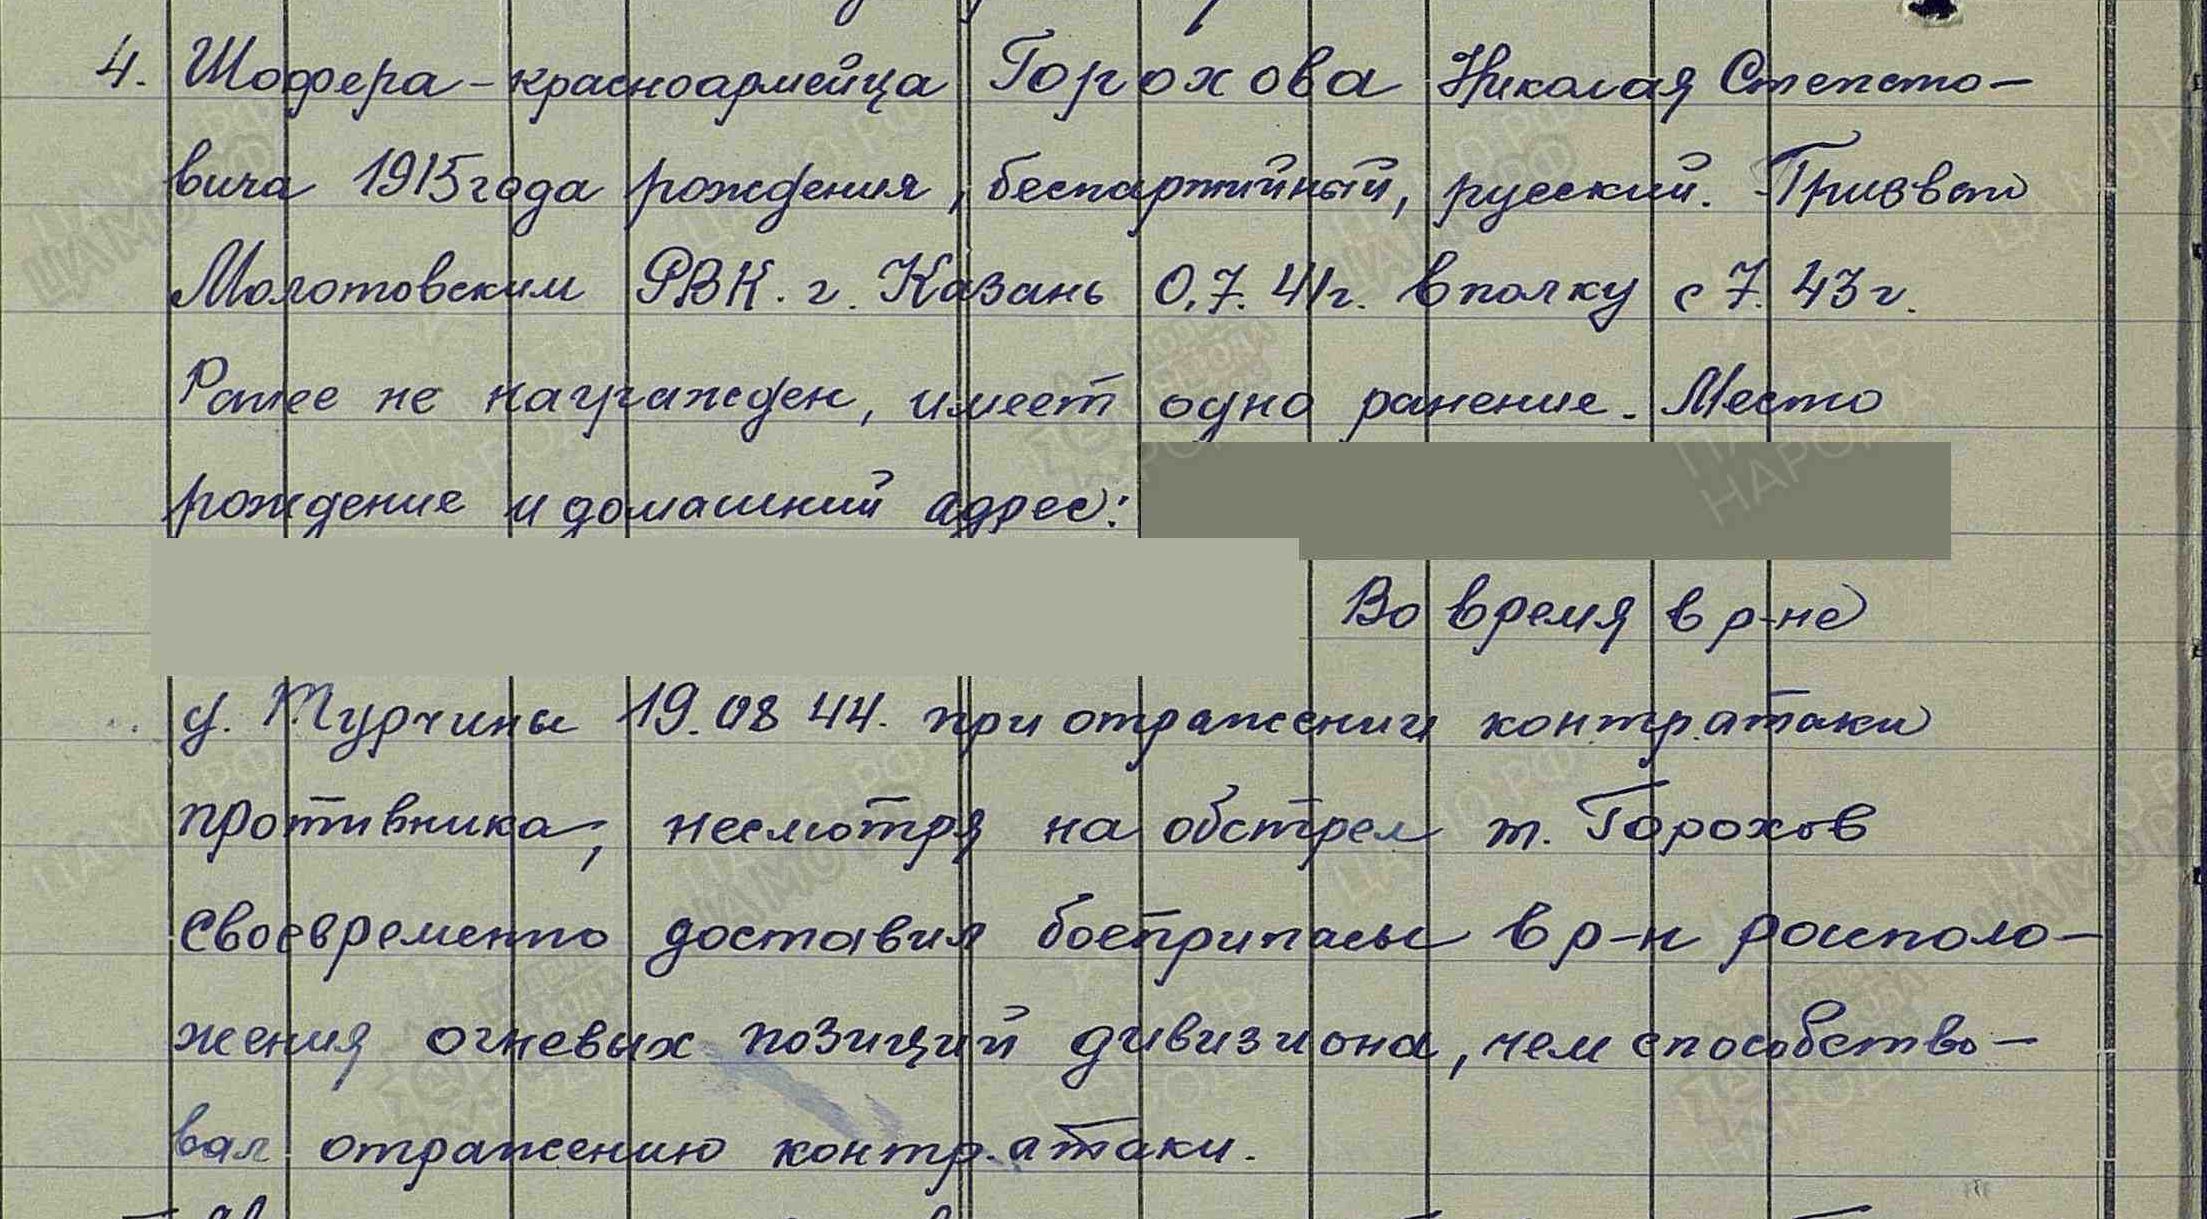 4. Шофера-красноармейца Горохова Николая Степано-
вича 1915 года рождения, беспартийный, русский. Призван
Молотовским РВК. г. Казань 0,7.41г. в полку с 7.43г.
Ранее не награжден, имеет одно ранение. Место
рождение и домашний адрес:
Во время в р-не
д. Турчины 19.08 44. при отражении контратаки
противника, несмотря на обстрел т. Горохов
своевременно доставил боеприпасы в р-н располо-
жения огневых позиций дивизиона, чем способство-
вал отражению контратаки.